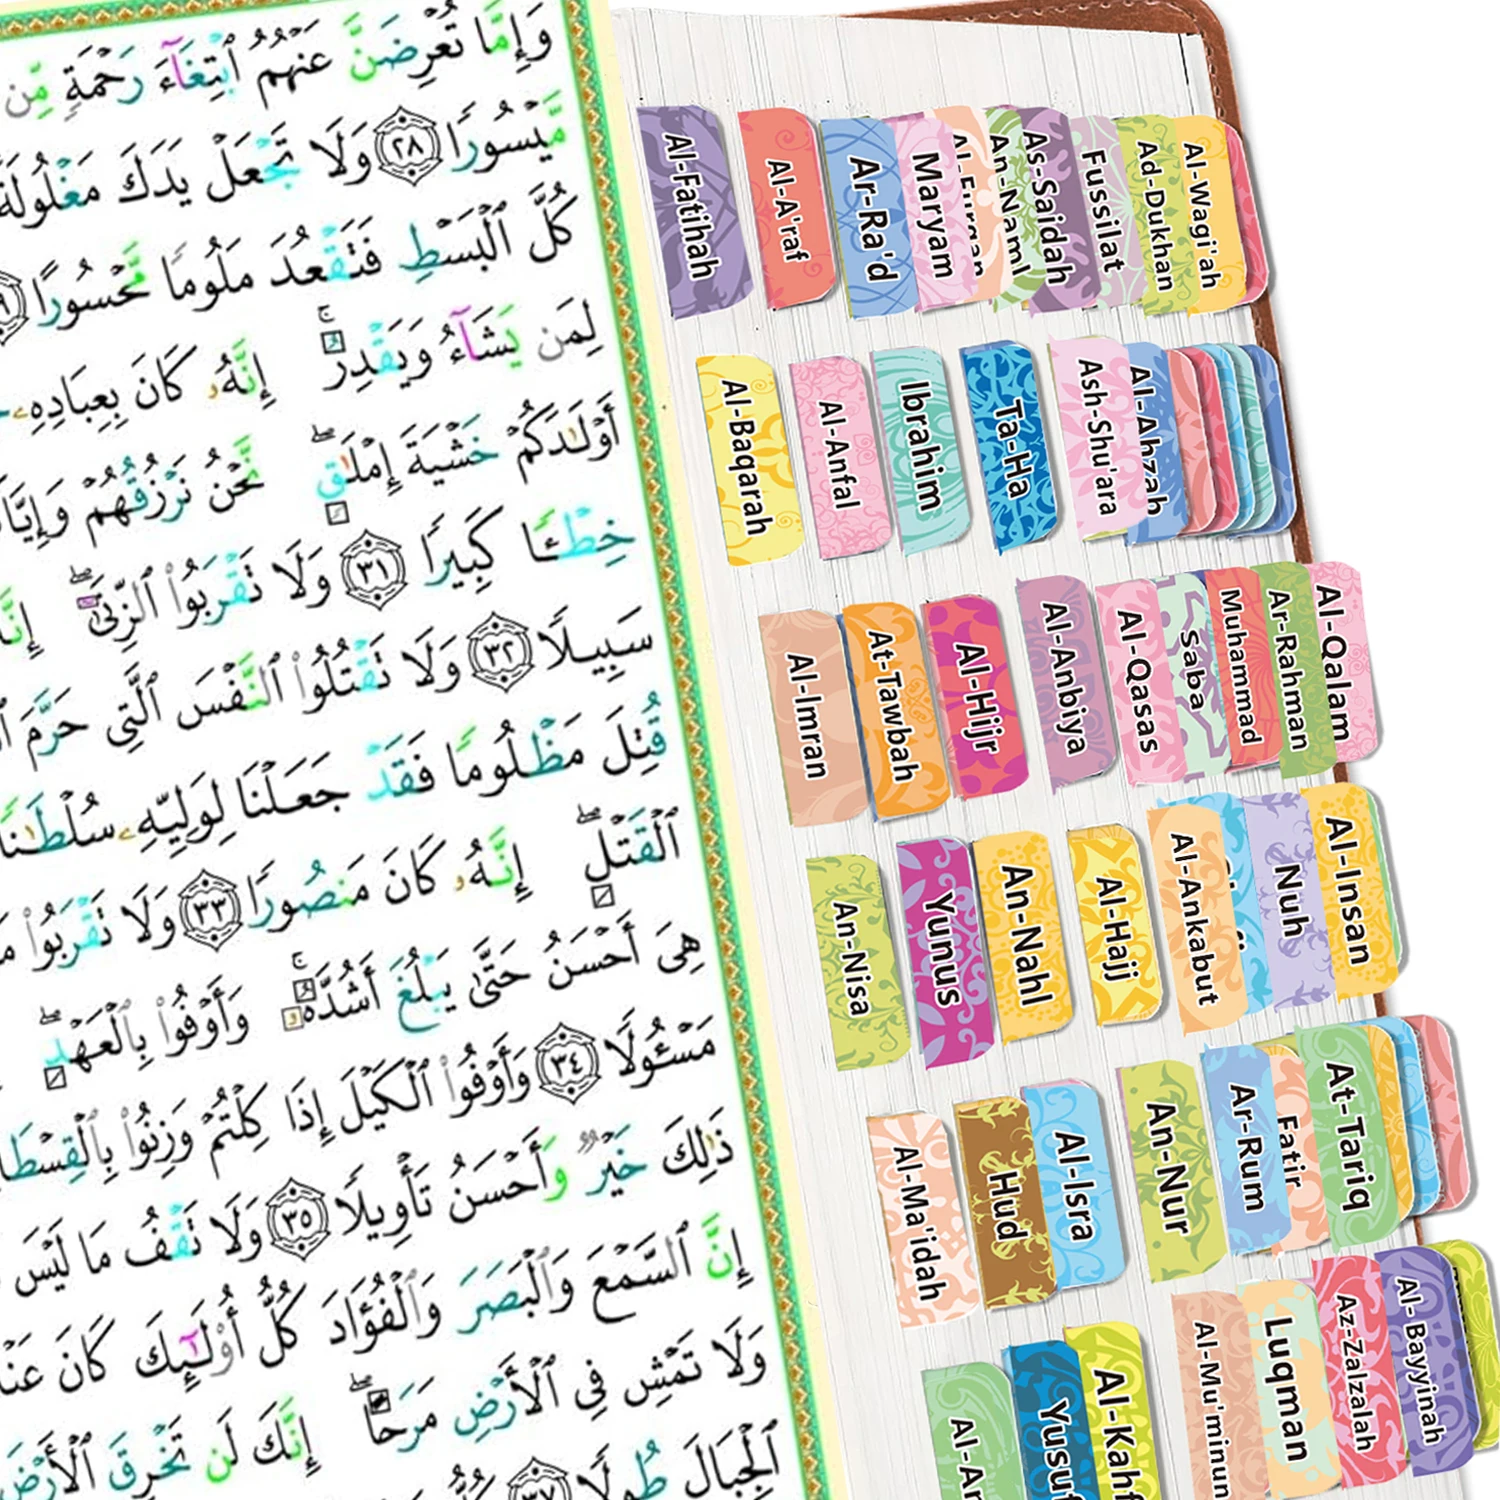 وَإِمَّا تُعْرِضَنَّ عَنْهُمُ ٱبْتِغَآءَ رَحْمَةٍ مِّن
مَّيْسُورًا ٢٨ وَلَا تَجْعَلْ يَدَكَ مَغْلُولَةً
كُلَّ ٱلْبَسْطِ فَتَقْعُدَ مَلُومًا مَّحْسُورًا
لِمَن يَشَآءُ وَيَقْدِرُ إِنَّهُۥ كَانَ بِعِبَادِهِۦ
أَوْلَـٰدَكُمْ خَشْيَةَ إِمْلَـٰقٍ نَّحْنُ نَرْزُقُهُمْ
خِطْـًٔا كَبِيرًا ٣١ وَلَا تَقْرَبُوا۟ ٱلزِّنَىٰٓ
سَبِيلًا ٣٢ وَلَا تَقْتُلُوا۟ ٱلنَّفْسَ ٱلَّتِى حَرَّمَ
قُتِلَ مَظْلُومًا فَقَدْ جَعَلْنَا لِوَلِيِّهِۦ سُلْطَـٰنًا
ٱلْقَتْلِ إِنَّهُۥ كَانَ مَنصُورًا ٣٣ وَلَا تَقْرَبُوا۟
هِىَ أَحْسَنُ حَتَّىٰ يَبْلُغَ أَشُدَّهُۥ وَأَوْفُوا۟ بِٱلْعَهْدِ
مَسْـُٔولًا ٣٤ وَأَوْفُوا۟ ٱلْكَيْلَ إِذَا كِلْتُمْ وَزِنُوا۟ بِٱلْقِسْطَا
ذَٰلِكَ خَيْرٌ وَأَحْسَنُ تَأْوِيلًا ٣٥ وَلَا تَقْفُ مَا لَيْسَ
إِنَّ ٱلسَّمْعَ وَٱلْبَصَرَ وَٱلْفُؤَادَ كُلُّ أُو۟لَـٰٓئِكَ كَانَ
وَلَا تَمْشِ فِى ٱلْأَرْضِ مَرَحًا إِنَّكَ لَن تَخْرِقَ ٱلْأَرْضَ
ٱلْجِبَالَ طُولًا ٣٧
Al-Fatihah
Al-A'raf
Ar-Ra'd
Maryam
Al-Furqan
An-Naml
As-Saidah
Fussilat
Ad-Dukhan
Al-Wagi'ah
Al-Baqarah
Al-Anfal
Ibrahim
Ta-Ha
Ash-Shu'ara
Al-Ahzah
Al-Imran
At-Tawbah
Al-Hijr
Al-Anbiya
Al-Qasas
Saba
Muhammad
Ar-Rahman
Al-Qalam
An-Nisa
Yunus
An-Nahl
Al-Hajj
Al-Ankabut
Nuh
Al-Insan
Al-Ma'idah
Hud
Al-Isra
An-Nur
Ar-Rum
Fatir
At-Tariq
Al-An
Yusuf
Al-Kahf
Al-Mu'minun
Luqman
Az-Zalzalah
Al- Bayyinah